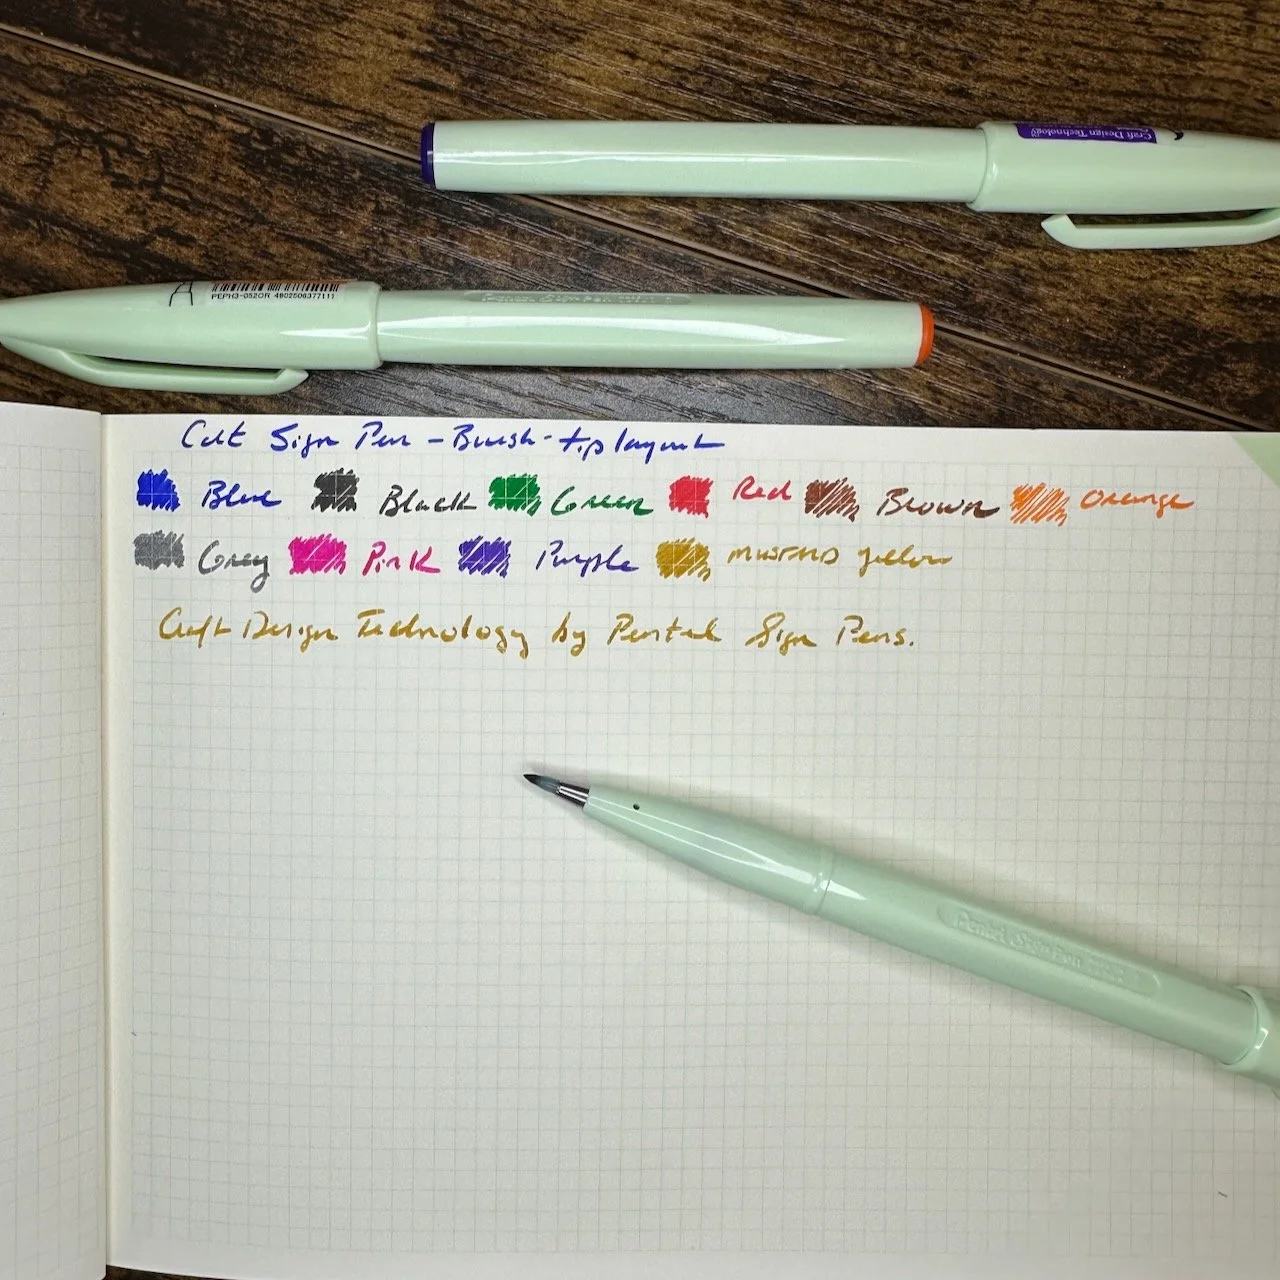 Craft Design Technology
A
PEPH3-052OR 4902506377111
Pentel Sign Pen
Cdt Sign Pen - Brush - tip layout
Blue Black Green Red Brown Orange
Grey Pink Purple mustard yellow
Craft Design Technology by Pentel Sign Pens.
Pentel Sign Pen